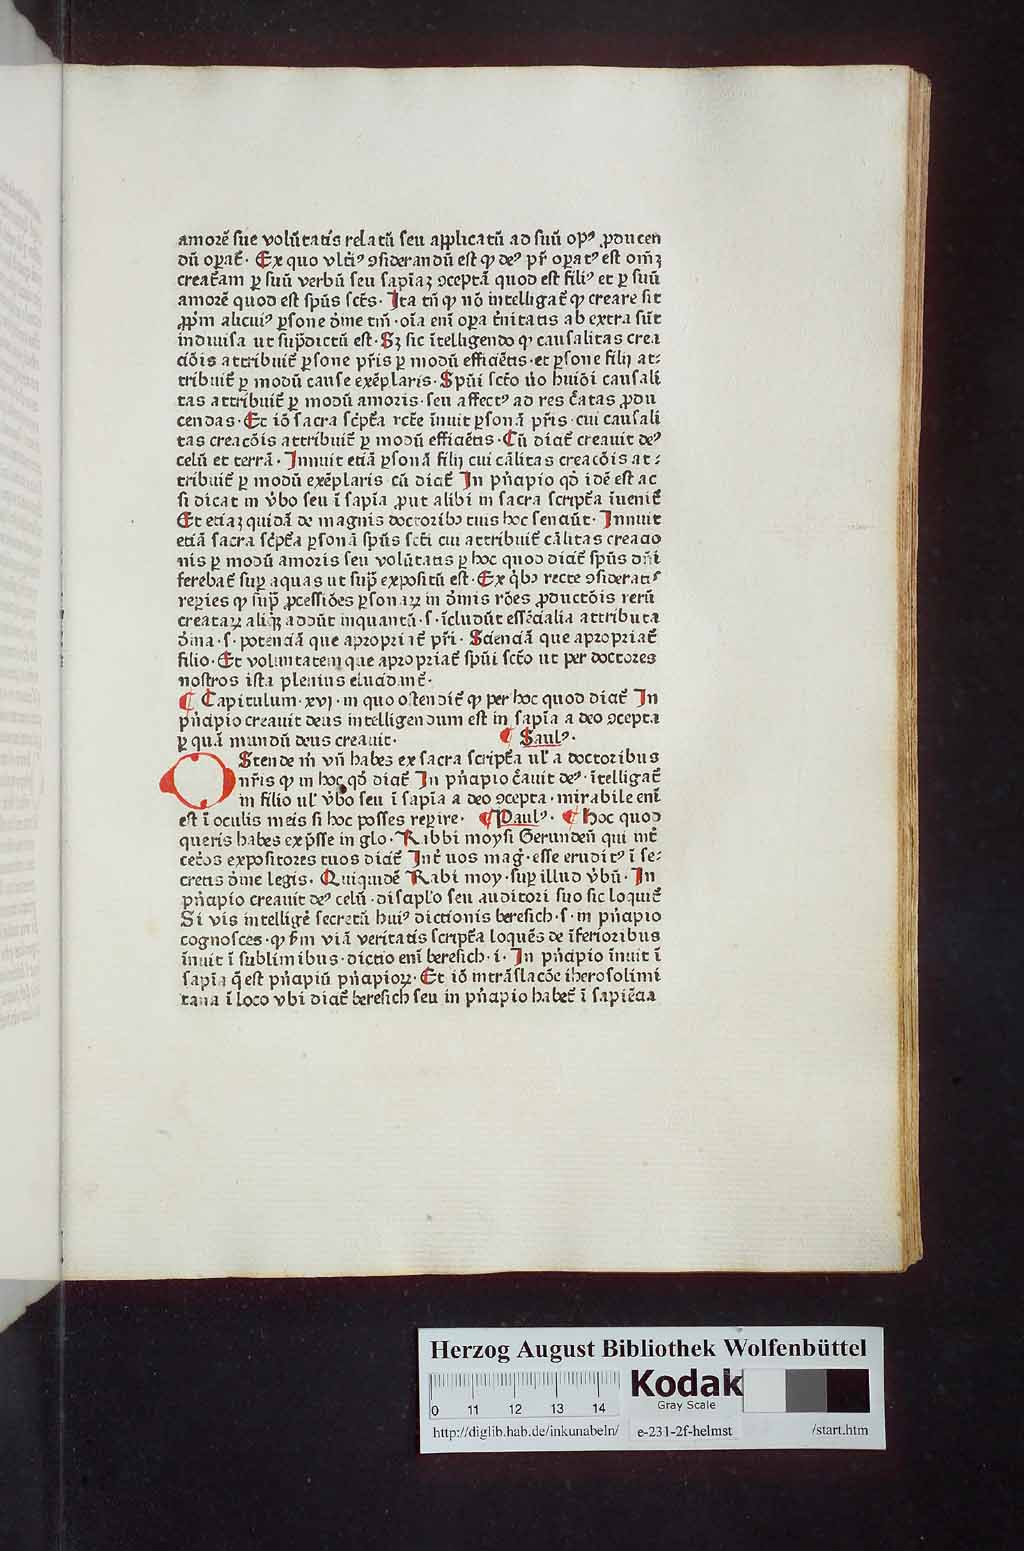 amorē sue volūtatis relatū seu applicatū ad suū opꝰ ꝓducen
dū oꝑat᷑. Ex quo vlt̄iꝰ ꝯsiderandū est ꝙ deꝰ pr̄ oꝑatꝰ est om̄ꝫ
creat᷑am ꝑ suū verbū seu sapīaꝫ ꝯceptā quod est filiꝰ et ꝑ suū
amorē quod est spūs sct̄s. Ita tn̄ ꝙ nō intelligat᷑ ꝙ creare sit
ꝓpͥm alicuiꝰ ꝑsone dīne tm̄. oīa eni᷑ oꝑa tͥnitatis ab extra sūt
indiuisa ut sup̄dictū est. Sꝫ sic ītelligendo ꝙ causalitas crea
cōis attribuit᷑ ꝑsone pr̄is ꝑ modū efficiētis. et ꝑsone filij at⸗
tribuit᷑ ꝑ modū cause exēplaris. Spūi scto v̄o huiōi causali
tas attribuit᷑ ꝑ modū amoris. seu affectꝰ ad res c̄atas ꝓdu
cendas. Et iō sacra sc͛pt̄a rcte īnuit ꝑsonā pr̄is. cui causali
tas creacōis attribuit᷑ ꝑ modū efficiētis. Cū dicit᷑ creauit deꝰ
celū et terrā. Innuit etiā ꝑsonā filij cui cālitas creacōis at⸗
tribuit᷑ ꝑ modū exēplaris cū dicit᷑ In pͥncipio qd̄ idē est ac
si dicat in v̄bo seu ī sapīa ꝓut alibi in sacra script̄a īuenit᷑
Et etiaꝫ quidā de magnis doctoribꝫ tuis hoc senciūt. Innuit
etiā sacra sc͛pt̄a ꝑsonā spūs sct̄i cui attribuit᷑ cālitas creacio
nis ꝑ modū amoris seu volūtatis ꝑ hoc quod dicit᷑ spūs dn̄i
ferebat᷑ suꝑ aquas ut sup̄ expositū est. Ex qͥbꝫ recte ꝯsideratis
reꝑies ꝙ sup̄ ꝓcessiōes ꝑsonaꝝ in dīnis rōes ꝓductōis rerū
creataꝝ aliqͥꝫ addūt inquantū. s. īcludūt essēcialia attributa
dīna. s. potenciā que apropriat᷑ pr̄i. Scienciā que apropriat᷑
filio. Et voluntatem que apropriat᷑ spūi scto ut per doctores
nostros ista plenius elucidant᷑.
¶ Capitulum. xvj. in quo ostendit᷑ ꝙ per hoc quod dicit᷑ In
pͥncipio creauit deus intelligendum est in sapīa a deo ꝯcepta
ꝑ quā mundū deus creauit. ¶ Saulꝰ.
OStende mͥ vn̄ habes ex sacra script̄a ul̓ a doctoribus
nr̄is ꝙ in hoc qd̄ dicit᷑ In pͥncipio c̄auit deꝰ. ītelligat᷑
in filio ul̓ v̄bo seu ī sapīa a deo ꝯcepta. mirabile eni᷑
est ī oculis meis si hoc posses reꝑire. ¶ Paulꝰ. ¶ Hoc quod
queris habes exp̄sse in glo. Ribbi moysi Gerundeñ qui int᷑
cet̄os expositores tuos dicit᷑ Int᷑ uos mag̓. esse eruditꝰ ī se⸗
cretis dīne legis. Quiquidē Rabi moy. suꝑ illud v̄bū. In
pͥncipio creauit deꝰ celū. disaplō seu auditori suo sic loquit᷑
Si vis intelliger̄ secretū huiꝰ dictionis beresich. s. in pͥncipio
cognosces. ꝙ ẜm viā veritatis script̄a loquēs de īferioribus
īnuit ī sublimibus. dictio eni᷑ beresich. i. In pͥncipio īnuit ī
sapīa q̄ est pͥncipiū pͥncipioꝝ. Et iō intrāslacōe iherosolimi
tana ī loco vbi dicit᷑ beresich seu in pͥncipio habet᷑ ī sapiēcia
Herzog August Bibliothek Wolfenbüttel
0 11 12 13 14
Kodak
Gray Scale
http://diglib.hab.de/inkunabeln/ e-231-2f-helmst /start.htm